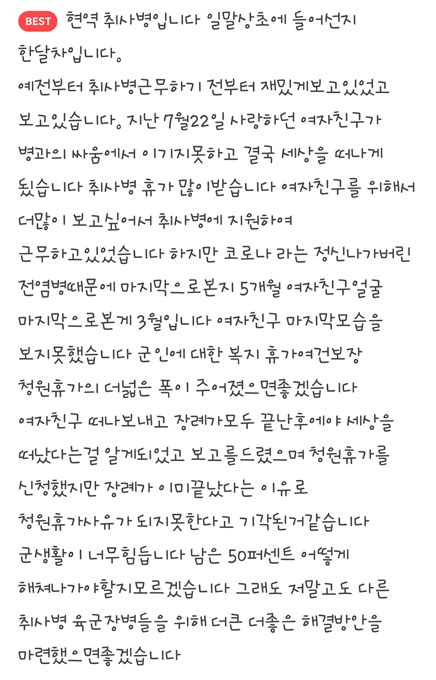 BEST 현역 취사병입니다 일말상초에 들어선지
한달차입니다.
예전부터 취사병근무하기 전부터 재밌게보고있었고
보고있습니다. 지난 7월22일 사랑하던 여자친구가
병과의 싸움에서 이기지못하고 결국 세상을 떠나게
됬습니다 취사병 휴가 많이받습니다 여자친구를 위해서
더많이 보고싶어서 취사병에 지원하여
근무하고있었습니다 하지만 코로나 라는 정신나가버린
전염병때문에 마지막으로본지 5개월 여자친구얼굴
마지막으로본게 3월입니다 여자친구 마지막모습을
보지못했습니다 군인에 대한 복지 휴가여건보장
청원휴가의 더넓은 폭이 주어졌으면좋겠습니다
여자친구 떠나보내고 장례가모두 끝난후에야 세상을
떠났다는걸 알게되었고 보고를드렸으며 청원휴가를
신청했지만 장례가 이미끝났다는 이유로
청원휴가사유가 되지못한다고 기각된거같습니다
군생활이 너무힘듭니다 남은 50퍼센트 어떻게
해쳐나가야할지모르겠습니다 그래도 저말고도 다른
취사병 육군장병들을 위해 더큰 더좋은 해결방안을
마련했으면좋겠습니다